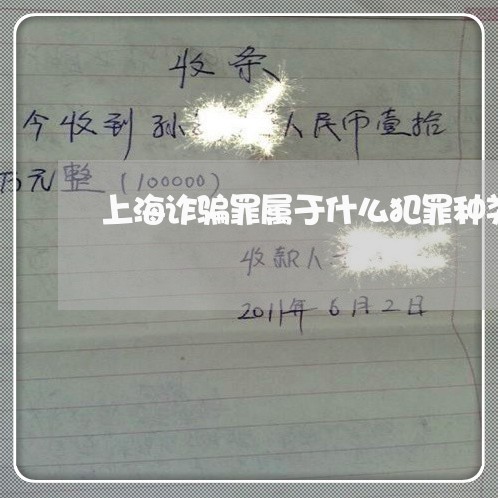 收条
今收到孙 人民币壹拾
万元整(100000)
上海诈骗罪属于什么犯罪种
收款人
2011年6月2日